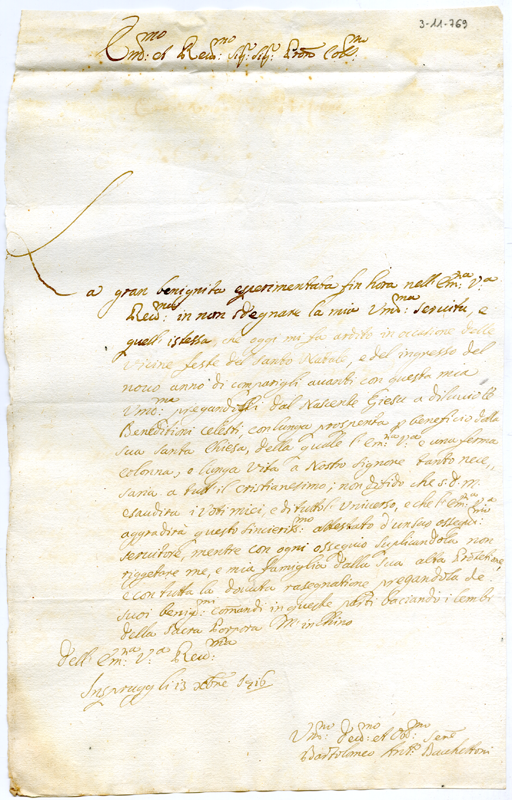 3-11-769
Em:mo et Reu:mo Sig: Sig: Pron Col:mo
La gran benignita esperimentata fin hora nell' Em:za V:a
Reu:ma in non sdegnare la mia Um:ma seruitu, e
quell' istessa, che oggi mi fa ardito in occasione delle
Vicine feste del Santo Natale, e del ingresso del
nouo anno di comparigli auanti con questa mia
Um:ma pregandogli dal Nascente Giesu a diluuio le
Beneditioni celesti, con lunga prosperita p beneficio della
sua Santa Chiesa, della quale l' Em:za V:a e una ferma
colonna, e lunga Vita à Nostro Signore tanto nece,,
saria a tutt' il cristianesimo; non difido che S: D: M:
esaudira i Voti miei, e di tutto l' Uniuerso, e che l' Em:za V:a
aggradirà questo sincieris:mo attestato d'un suo ossequi:mo
seruitore, mentre con ogni ossequio suplicandola non
riggettare me, e mia famiglia dalla sua alta Protetione,
e con tutta la douuta rasegnatione pregandola de
suoi benig:mi comandi in queste parti baciando i lembi
della Sacra Porpora M' inchino
Dell' Em:za V:a Reu:ma
Inspruggh li 13 Xbre 1716
Um:mo Deu:mo et Ob:mo Seru
Bartolomeo Ant:o Bacchettoni